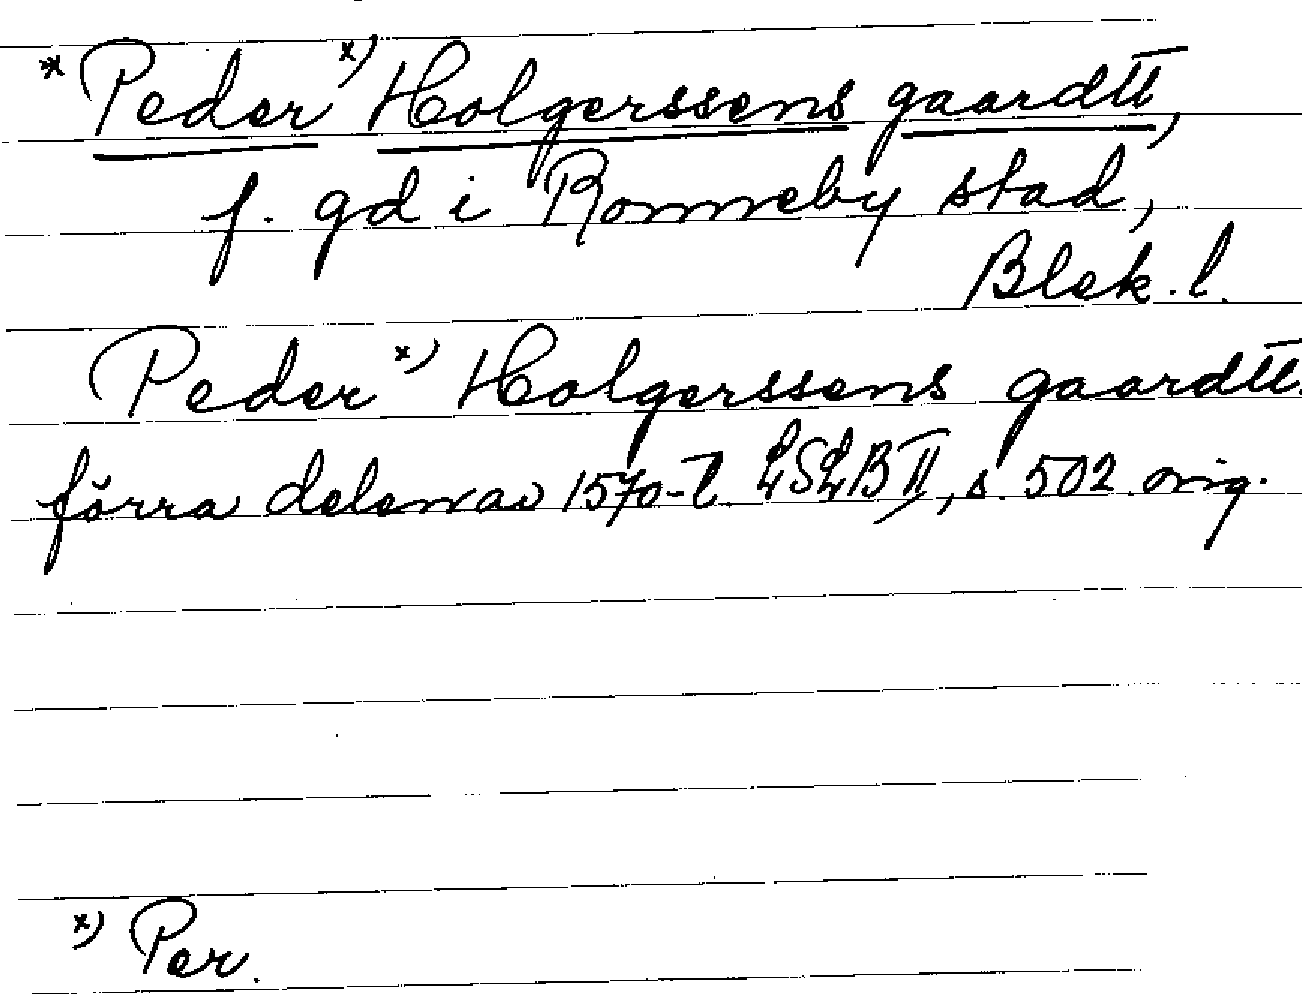 * Peder x) Holgerssens gaardtt,
f. gd i Ronneby stad,
Blek. l.
Peder x) Holgerssens gaardtt.
förra delen av 1570-t. LSLB II, s. 502. orig.
x) Per.